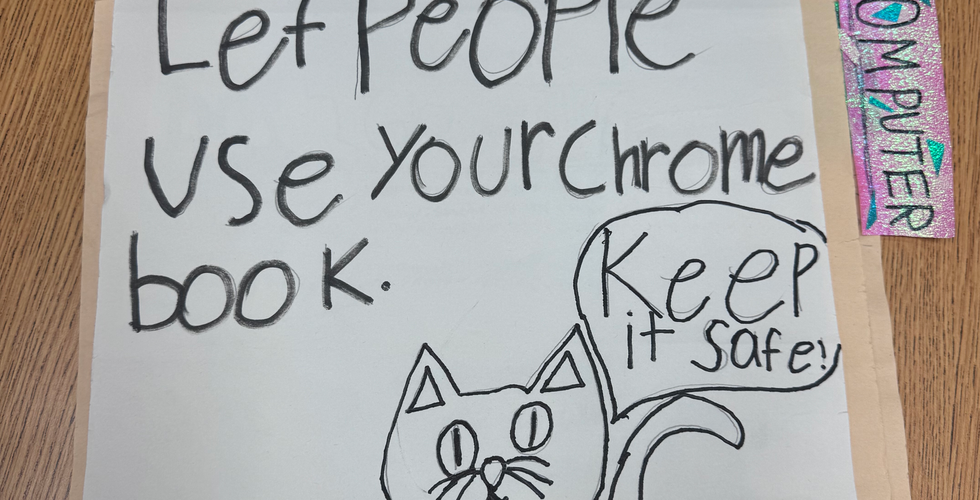 Let People
use your chrome
book.
Keep
it safe!
OMPUTER